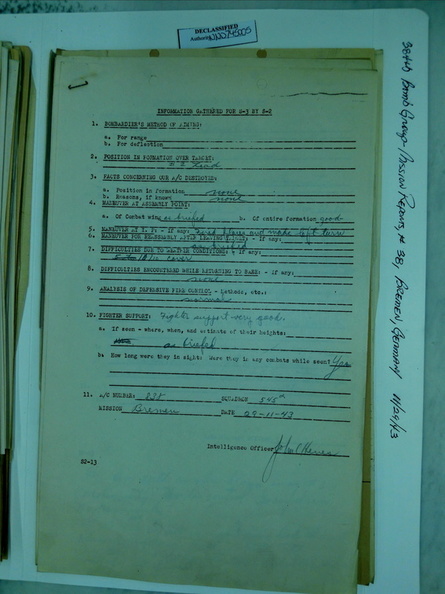 DECLASSIFIED
Authority NND 745005
384th Bomb Group - Mission Reports, # 38, Bremen, Germany 11/29/43
INFORMATION GATHERED FOR S-3 BY S-2
1. BOMBARDIER'S METHOD OF AIMING:
a. For range
b. For deflection
2. POSITION IN FORMATION OVER TARGET:
Lead
3. FACTS CONCERNING OUR A/C DESTROYED:
a. Position in formation none
b. Reasons, if known none
4. MANEUVER AT ASSEMBLY POINT:
a. Of Combat wing as briefed b. Of entire formation good
5. MANEUVER AT I. P. - If any: and make left turn
6. MANEUVER FOR REASSEMBLY AFTER LEAVING TARGET; - If any: as briefed
7. DIFFICULTIES DUE TO WEATHER CONDITIONS; - if any:
10/10 cover
8. DIFFICULTIES ENCOUNTERED WHILE RETURNING TO BASE: - if any:
none
9. ANALYSIS OF DEFENSIVE FIRE CONTROL - methods, etc.:
normal
10. FIGHTER SUPPORT: Fighter support very good.
a. If seen - where, when, and estimate of their heights:
as briefed
b. How long were they in sight: Were they in any combats while seen? Yes
11. A/C NUMBER: 838 SQUADRON 545th
MISSION Bremen DATE 29-11-43
Intelligence Officer
S2-13